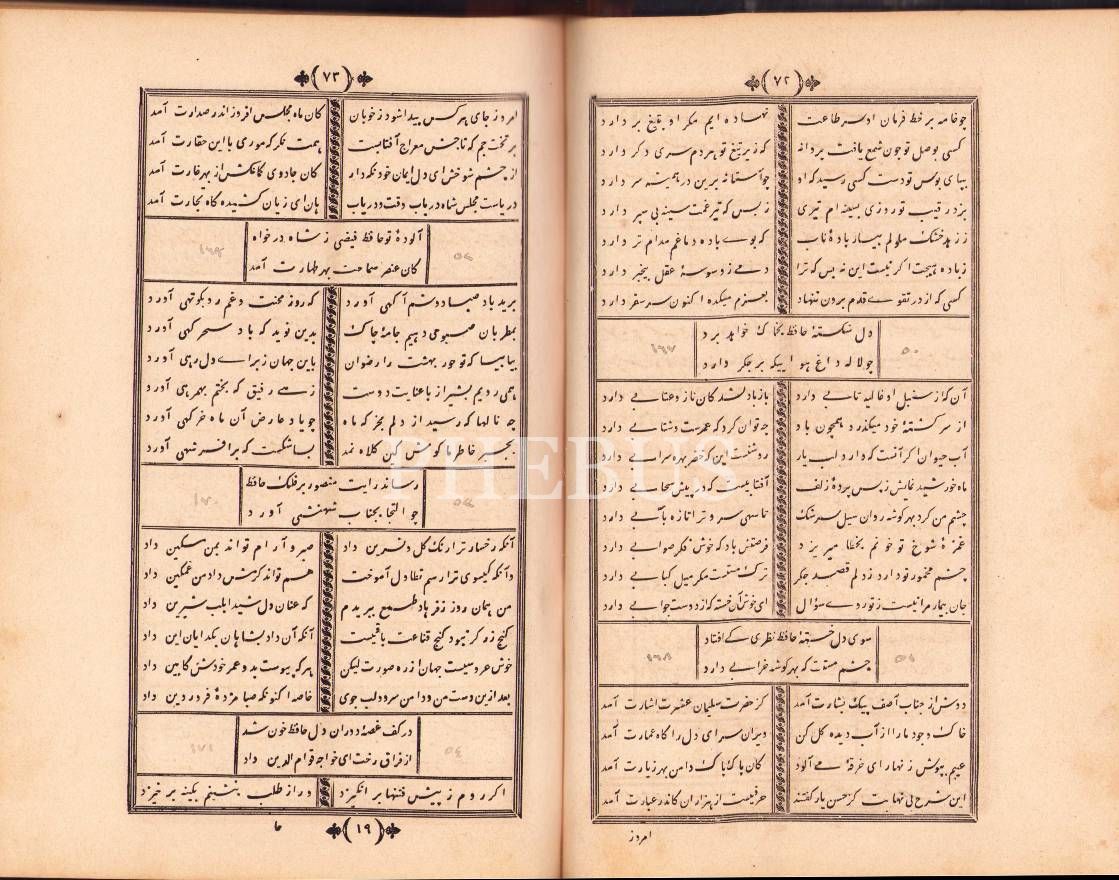 ٧٢
چو خامه بر خط فرمان او سر طاعت نهاده ایم مگر او بتیغ بر دارد
کسی بوصل تو چون شمع یافت پروانه که زیر تیغ تو هر دم سری دگر دارد
بپای بوس تو دست کسی رسید که او چو آستانه برین در همیشه سر دارد
بزد رقیب تو روزی بسینه ام تیری ز بس که تیر غمت سینه بی سپر دارد
ز زهد خشک ملولم بیار بادهٔ ناب که بوے باده دماغم مدام تر دارد
ز باده هیچت اگر نیست این نه بس که ترا دمے ز وسوسهٔ عقل بیخبر دارد
کسی که از در تقوے قدم برون ننهاد بعزم میکده اکنون سر سفر دارد
دل شکستهٔ حافظ بخاک خواهد برد
چو لاله داغ هوایی که بر جگر دارد
١٦٧
٥٠
آن که از سنبل او غالیه تابے دارد باز با دلشد کان ناز و عتابے دارد
از سر کشتهٔ خود میگذرد همچون باد چه توان کرد که عمرست و شتابے دارد
آب حیوان اگر آنست که دارد لب یار روشنست این که خضر بهره سرابے دارد
ماه خورشید نمایش ز پس پردهٔ زلف آفتابیست که در پیش سحابے دارد
چشم من کرد بهر گوشه روان سیل سرشک تا سهی سرو ترا تازه بآبے دارد
غمزهٔ شوخ تو خونم بخطا میریزد فرصتش باد که خوش فکر صوابے دارد
چشم مخمور تو دارد ز دلم قصد جگر ترک مستست مگر میل کبابے دارد
جان بیمار مرا نیست ز تو روے سؤال ای خوش آن خسته که از دوست جوابے دارد
سوی دل خستهٔ حافظ نظری کے افتاد
چشم مستت که بهر گوشه خرابے دارد
١٦٨
٥١
دوش از جناب آصف پیک بشارت آمد کز حضرت سلیمان عشرت اشارت آمد
خاک وجود ما را از آب دیده گل کن ویران سرای دل را گاه عمارت آمد
عیبم بپوش زنهار ای خرقهٔ مے آلود کان پاک پاک دامن بهر زیارت آمد
این شرح بی نهایت کز حسن یار گفتند حرفیست از هزاران کاندر عبارت آمد
امروز
٧٣
امروز جای هر کس پیدا شود ز خوبان کان ماه مجلس افروز اندر صدارت آمد
بر تخت جم که تاجش معراج آفتابست همت نگر که موری با این حقارت آمد
از چشم شوخش ای دل ایمان خود نگه دار کان جادوی کمانکش از بهر غارت آمد
دریاست مجلس شاه دریاب وقت و دریاب هان ای زیان کشیده گاه تجارت آمد
آلودهٔ تو حافظ فیضی ز شاه در خواه
کان عنصر سماحت بهر طهارت آمد
١٦٩
برید باد صبا دوشم آگهی آورد که روز محنت و غم رو بکوتهی آورد
بمطربان صبوحی دهیم جامهٔ چاک بدین نوید که باد سحر گهی آورد
بیا بیا که تو حور بهشت را رضوان باین جهان ز براے دل رهی آورد
همی رویم بشیراز با عنایت دوست زهے رفیق که بختم بهمرهی آورد
چه نالها که رسید از دلم بخرگه ماه چو یاد عارض آن ماه خرگهی آورد
بجبر خاطر ما کوش کین کلاه نمد بسا شکست که بر افسر شهی آورد
رساند رایت منصور بر فلک حافظ
چو التجا بجناب شهنشهی آورد
١٧٠
آنکه رخسار ترا رنگ گل و نسرین داد صبر و آرام تواند بمن مسکین داد
وآنکه گیسوی ترا رسم تطاول آموخت هم تواند کرمش داد من غمگین داد
من همان روز ز فرهاد طمع ببریدم که عنان دل شیدا بلب شیرین داد
گنج زر گر نبود گنج قناعت باقیست آنکه آن داد بشاهان بگدایان این داد
خوش عروسیست جهان از ره صورت لیکن هر که پیوست بدو عمر خودش کابین داد
بعد ازین دست من و دامن سرو و لب جوی خاصه اکنون که صبا مژدهٔ فروردین داد
در کف غصهٔ دوران دل حافظ خون شد
از فراق رخت ای خواجه قوام الدین داد
١٧١
٥٤
اگر روم ز پیش فتنها بر انگیزد ور از طلب بنشینم بکینه بر خیزد
١٩